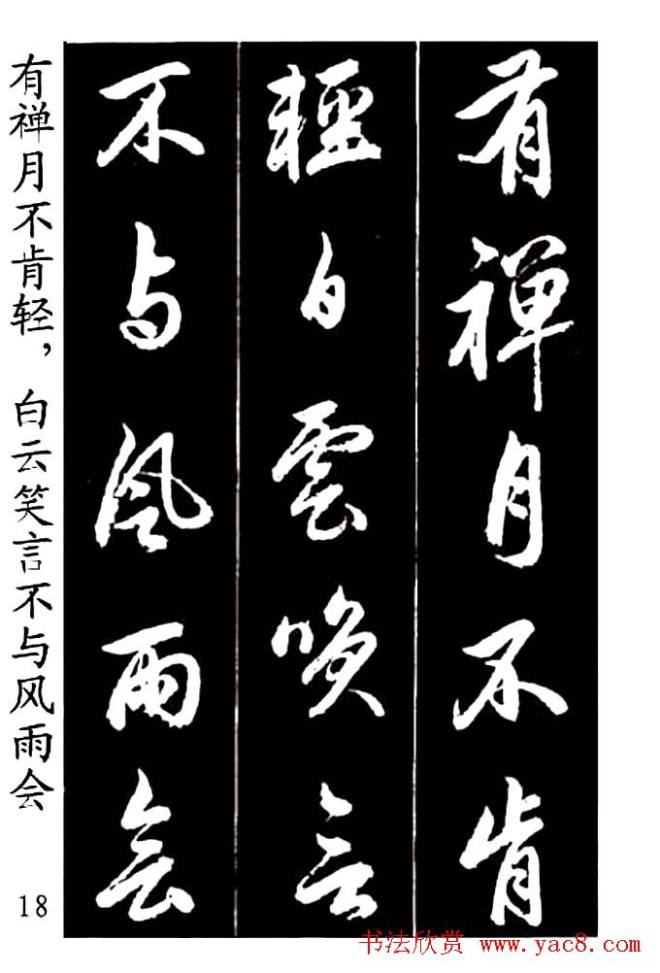 有禅月不肯
輕白雲咲言
不与风雨会
有禅月不肯轻，白云笑言不与风雨会
18
书法欣赏 www.yac8.com